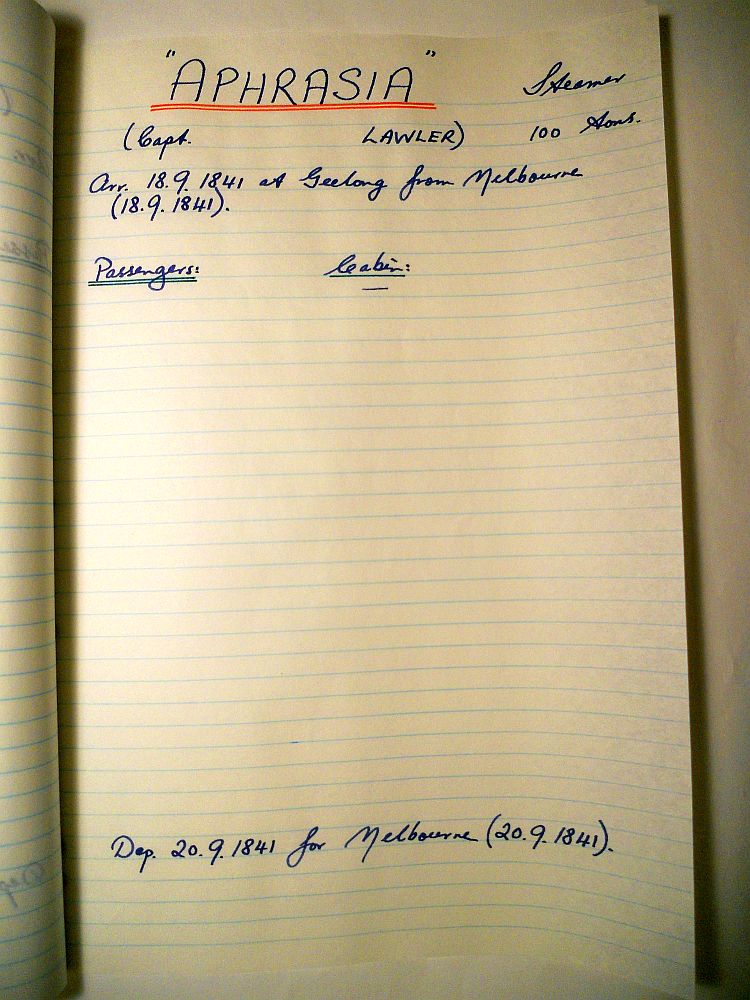 "APHRASIA" Steamer
(Capt. LAWLER) 100 tons.
Arr. 18.9.1841 at Geelong from Melbourne
(18.9.1841).
Passengers: Cabin:
—
Dep. 20.9.1841 for Melbourne (20.9.1841).